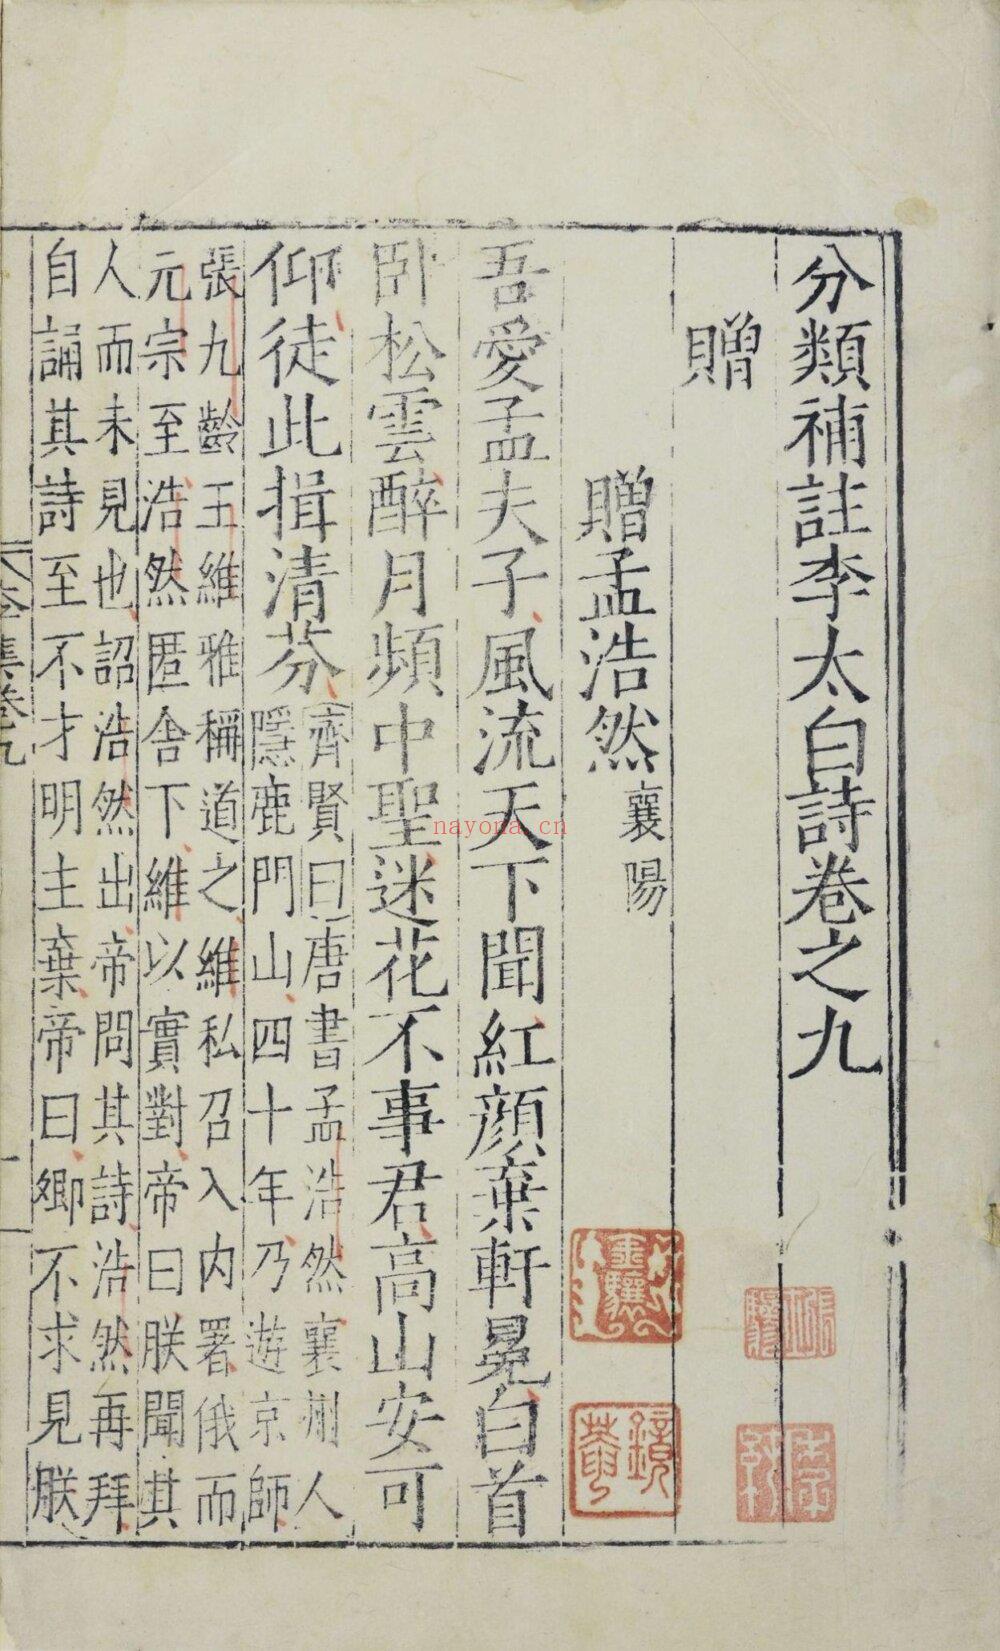 分類補註李太白詩卷之九
贈
贈孟浩然襄陽
吾愛孟夫子風流天下聞紅顏棄軒冕白首
卧松雲醉月頻中聖迷花不事君高山安可
仰徒此揖清芬
齊賢曰唐書孟浩然襄州人
隱鹿門山四十年乃遊京師
張九齡王維雅稱道之維私召入內署俄而
元宗至浩然匿舍下維以實對帝曰朕聞其
人而未見也詔浩然出帝問其詩浩然再拜
自誦其詩至不才明主棄帝曰卿不求見朕
李集卷九
一
nayona.cn